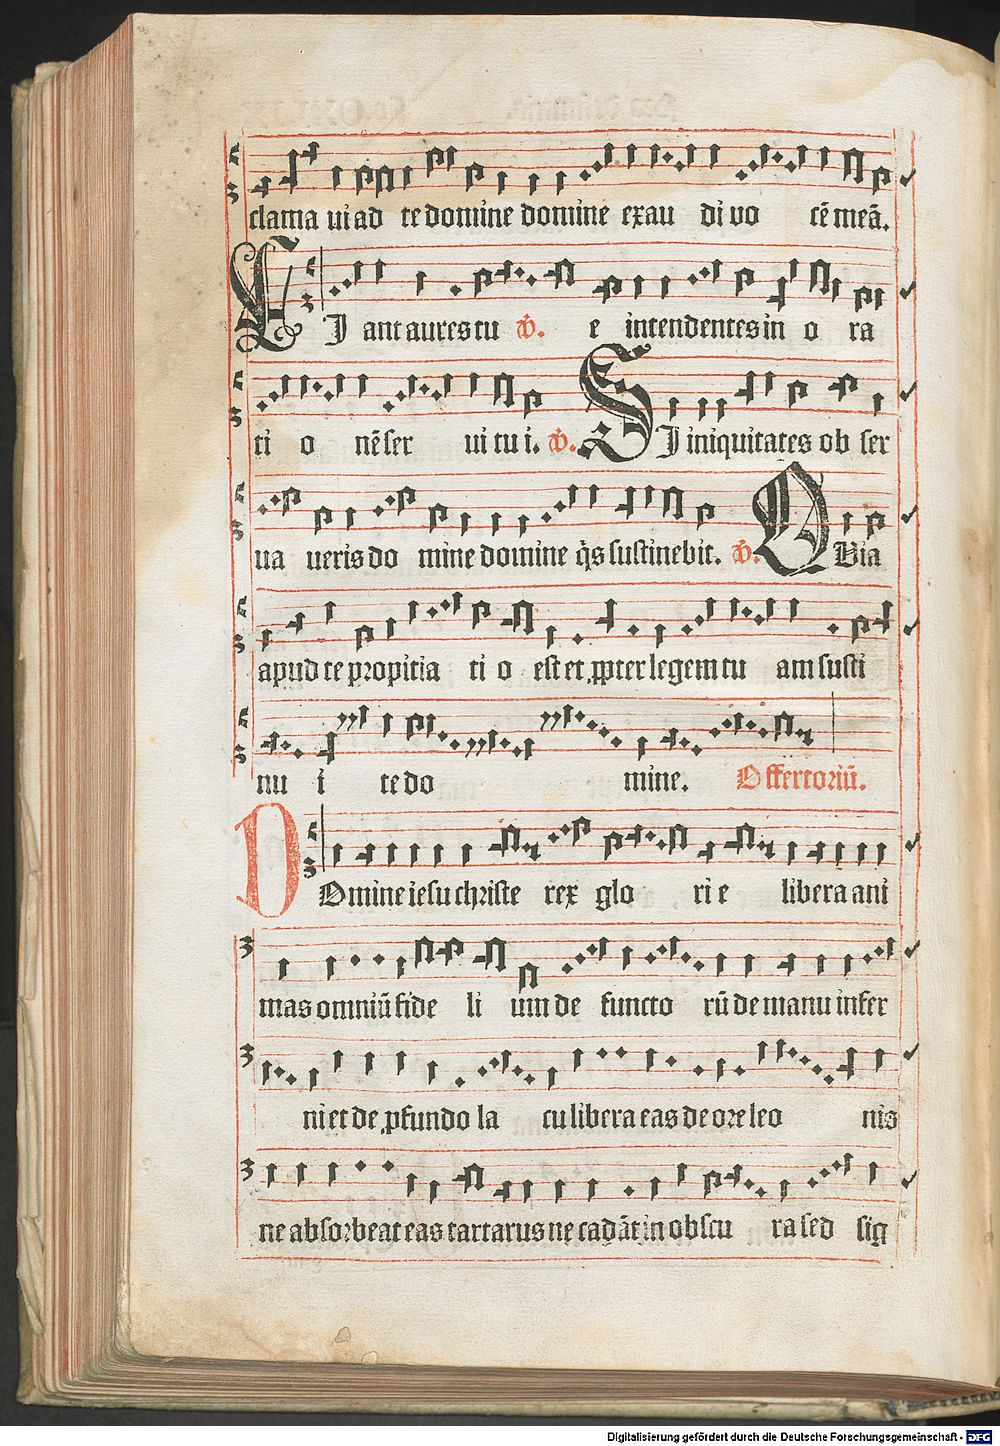 clama ui ad te domine domine exau di uo cē meā.
FJ ant aures tu v̄. e intendentes in o ra
ti o nē ser ui tu i. v̄. SJ iniquitates ob ser
ua ueris do mine domine q̄s sustinebit. v̄. QVia
apud te propitia ti o est et ꝓpter legem tu am susti
nu i te do mine. Offertoriū.
DOmine iesu christe rex glo ri e libera ani
mas omniū fide li um de functo rū de manu infer
ni et de ꝓfundo la cu libera eas de ore leo nis
ne absorbeat eas tartarus ne cadāt in obscu ra sed sig
Digitalisierung gefördert durch die Deutsche Forschungsgemeinschaft - DFG